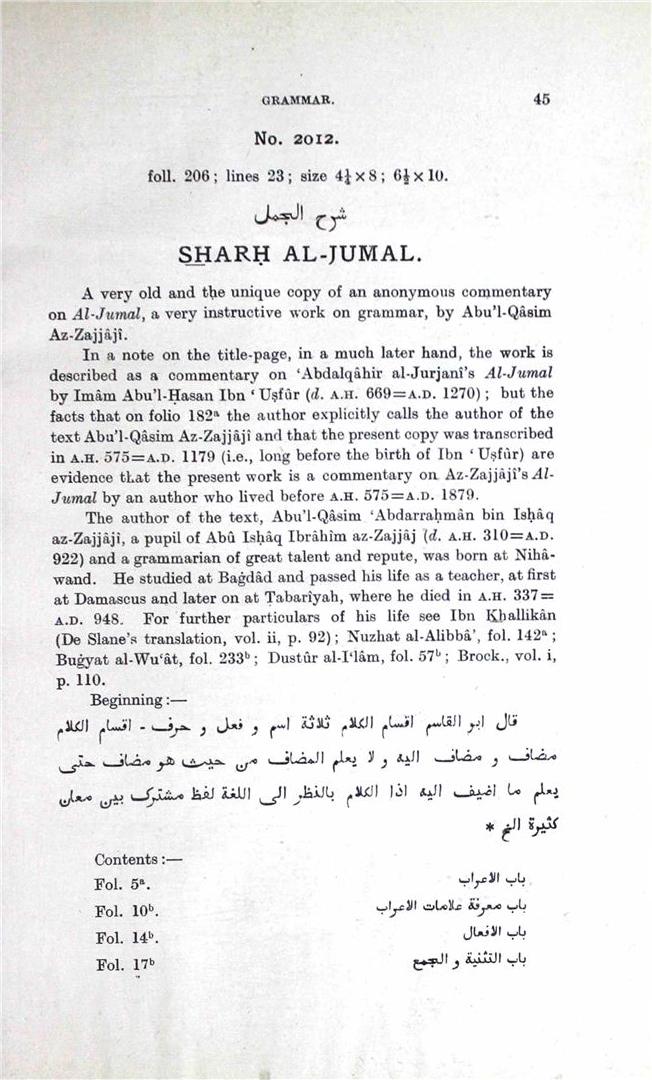 GRAMMAR. 45
No. 2012.
foll. 206; lines 23; size 4¼ × 8; 6½ × 10.
شرح الجمل
SHARḤ AL-JUMAL.
A very old and the unique copy of an anonymous commentary
on Al-Jumal, a very instructive work on grammar, by Abu'l-Qâsim
Az-Zajjâjî.
In a note on the title-page, in a much later hand, the work is
described as a commentary on ‘Abdalqâhir al-Jurjanî's Al-Jumal
by Imâm Abu'l-Ḥasan Ibn ‘Uṣfûr (d. A.H. 669=A.D. 1270); but the
facts that on folio 182ᵃ the author explicitly calls the author of the
text Abu'l-Qâsim Az-Zajjâjî and that the present copy was transcribed
in A.H. 575=A.D. 1179 (i.e., long before the birth of Ibn ‘Uṣfûr) are
evidence that the present work is a commentary on Az-Zajjâjî's Al-
Jumal by an author who lived before A.H. 575=A.D. 1879.
The author of the text, Abu'l-Qâsim ‘Abdarraḥmân bin Isḥâq
az-Zajjâjî, a pupil of Abû Isḥâq Ibrâhîm az-Zajjâj (d. A.H. 310=A.D.
922) and a grammarian of great talent and repute, was born at Nihâ-
wand. He studied at Baġdâd and passed his life as a teacher, at first
at Damascus and later on at Ṭabarîyah, where he died in A.H. 337=
A.D. 948. For further particulars of his life see Ibn Khallikân
(De Slane's translation, vol. ii, p. 92); Nuzhat al-Alibbâ’, fol. 142ᵃ;
Buġyat al-Wu‘ât, fol. 233ᵇ; Dustûr al-I‘lâm, fol. 57ᵇ; Brock., vol. i,
p. 110.
Beginning:—
قال ابو القاسم اقسام الكلام ثلاثة اسم و فعل و حرف - اقسام الكلام
مضاف و مضاف اليه و لا يعلم المضاف من حيث هو مضاف حتى
يعلم ما اضيف اليه اذا الكلام بالنظر الى اللغة لفظ مشترك بين معان
كثيرة الخ *
Contents:—
Fol. 5ᵃ. باب الاعراب
Fol. 10ᵇ. باب معرفة علامات الاعراب
Fol. 14ᵇ. باب الافعال
Fol. 17ᵇ باب التثنية و الجمع